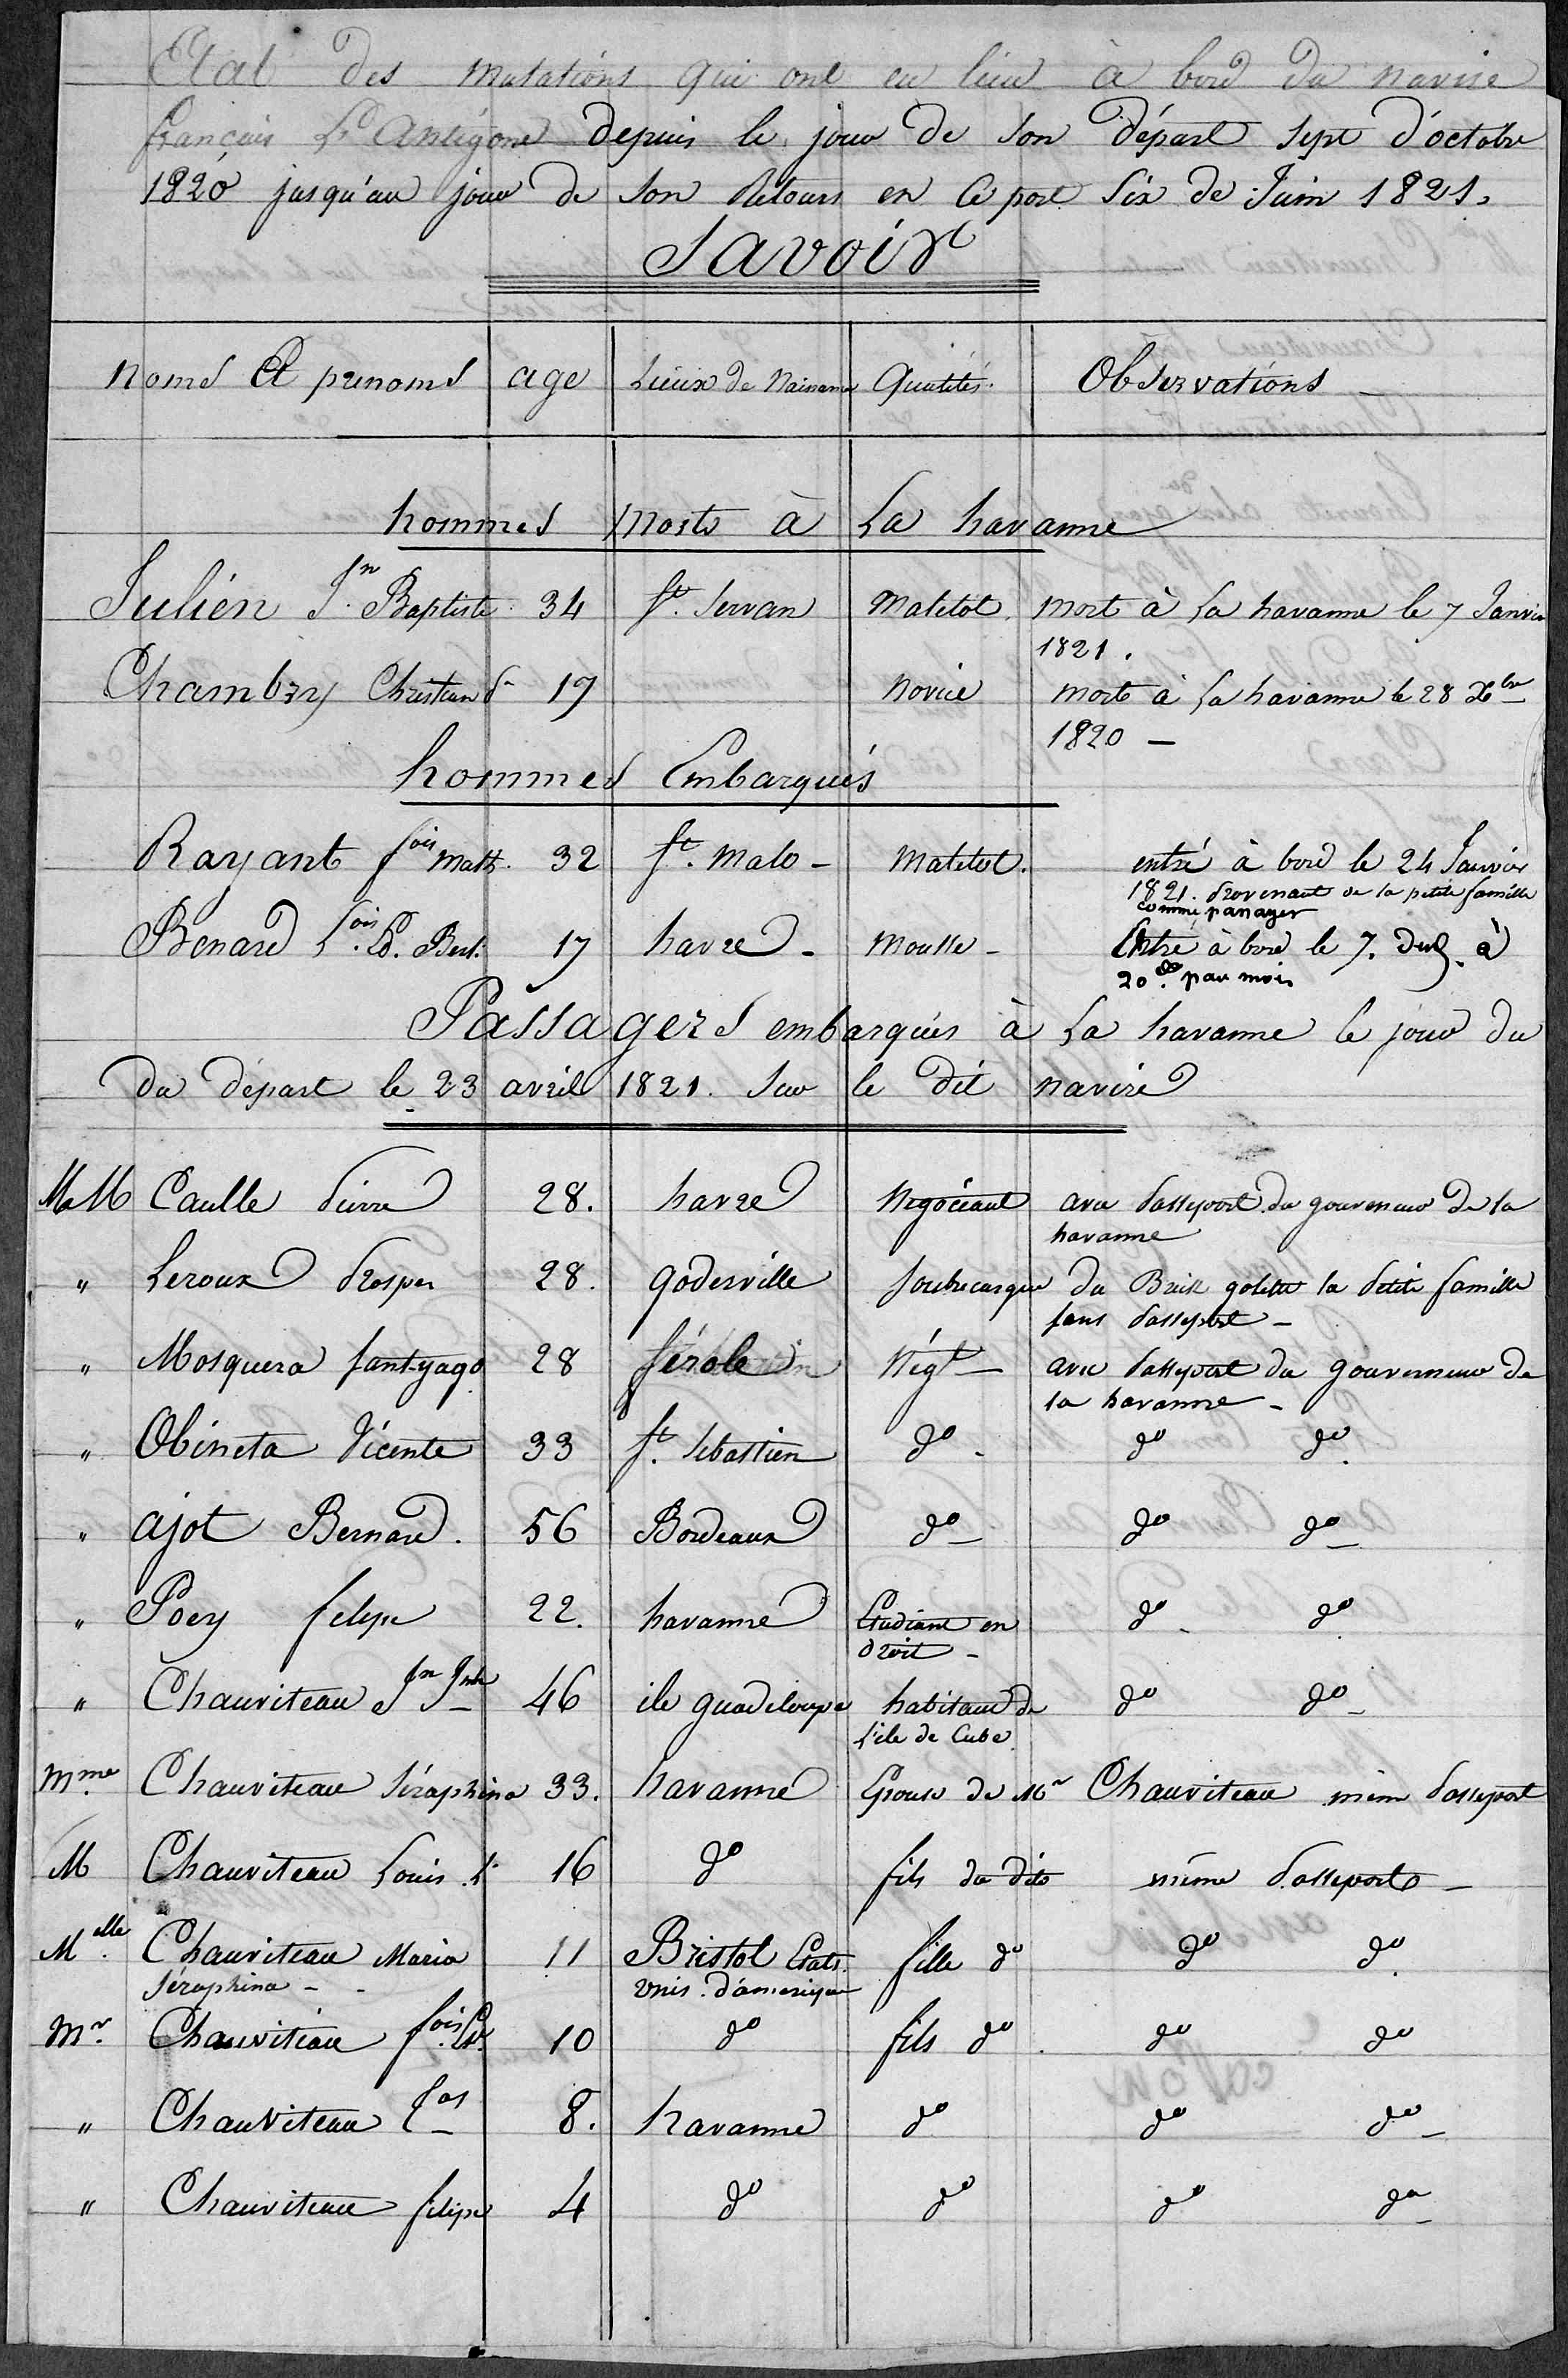 Etat des mutations qui ont eu lieu à bord du navire
français L'Antigone depuis le jour de son départ sept d'octobre
1820 jusqu'au jour de son Retours en Ce port Six de Juin 1821.
Savoir
noms Et prenoms age Lieux de Naissance Qualités Observations
hommes morts à La havanne
Julién Jn Baptiste 34 St. Servan Matelot. mort à La havanne le 7 Janvier
1821.
Chambry Christian 17 novice mort à La havanne le 28 Xbre
1820 —
hommes Embarqués
Rayant fois Math. 32 St. Malo - Matelot. entré à bord le 24 Janvier
1821. Provenant de la petite famille
comme passager
Benard Bert. 17 havre - Mousse - Entré à bord le 7. dud. à
20 par mois
Passagers embarqués à La havanne le jour du
du départ le 23 avril 1821. Sur le dit navire
MM Caulle Pierre 28. havre Négociant avec Passeport du gouverneur de la
havanne
" Leroux Prosper 28. Goderville Soubrecargue du Brick golette la Petite famille
sans Passeport -
" Mosquera Santyago 28 férole Négt - avec Passeport du gouverneur de
la havanne -
" Obineta Vicente 33 St. Sebastien do - do do.
" ajot Bernard. 56 Bordeaux do - do do -
" Poey felipe 22. havanne Etudiant en do - do
droit -
" Chauviteau Jn Jph 46 ile guadeloupe habitant de do do -
l'ile de Cuba.
Mme Chauviteau Séraphina 33. havanne Epouse de Mr Chauviteau même Passeport
M Chauviteau Louis 16 do fils du dito même Passeport -
Melle Chauviteau Maria 11 Bristol Etats fille do do do.
Séraphina - - unis d'amerique
Mr. Chauviteau fois 10 do fils do do do
" Chauviteau 8. havanne do do do -
" Chauviteau felipe 4 do do do do -